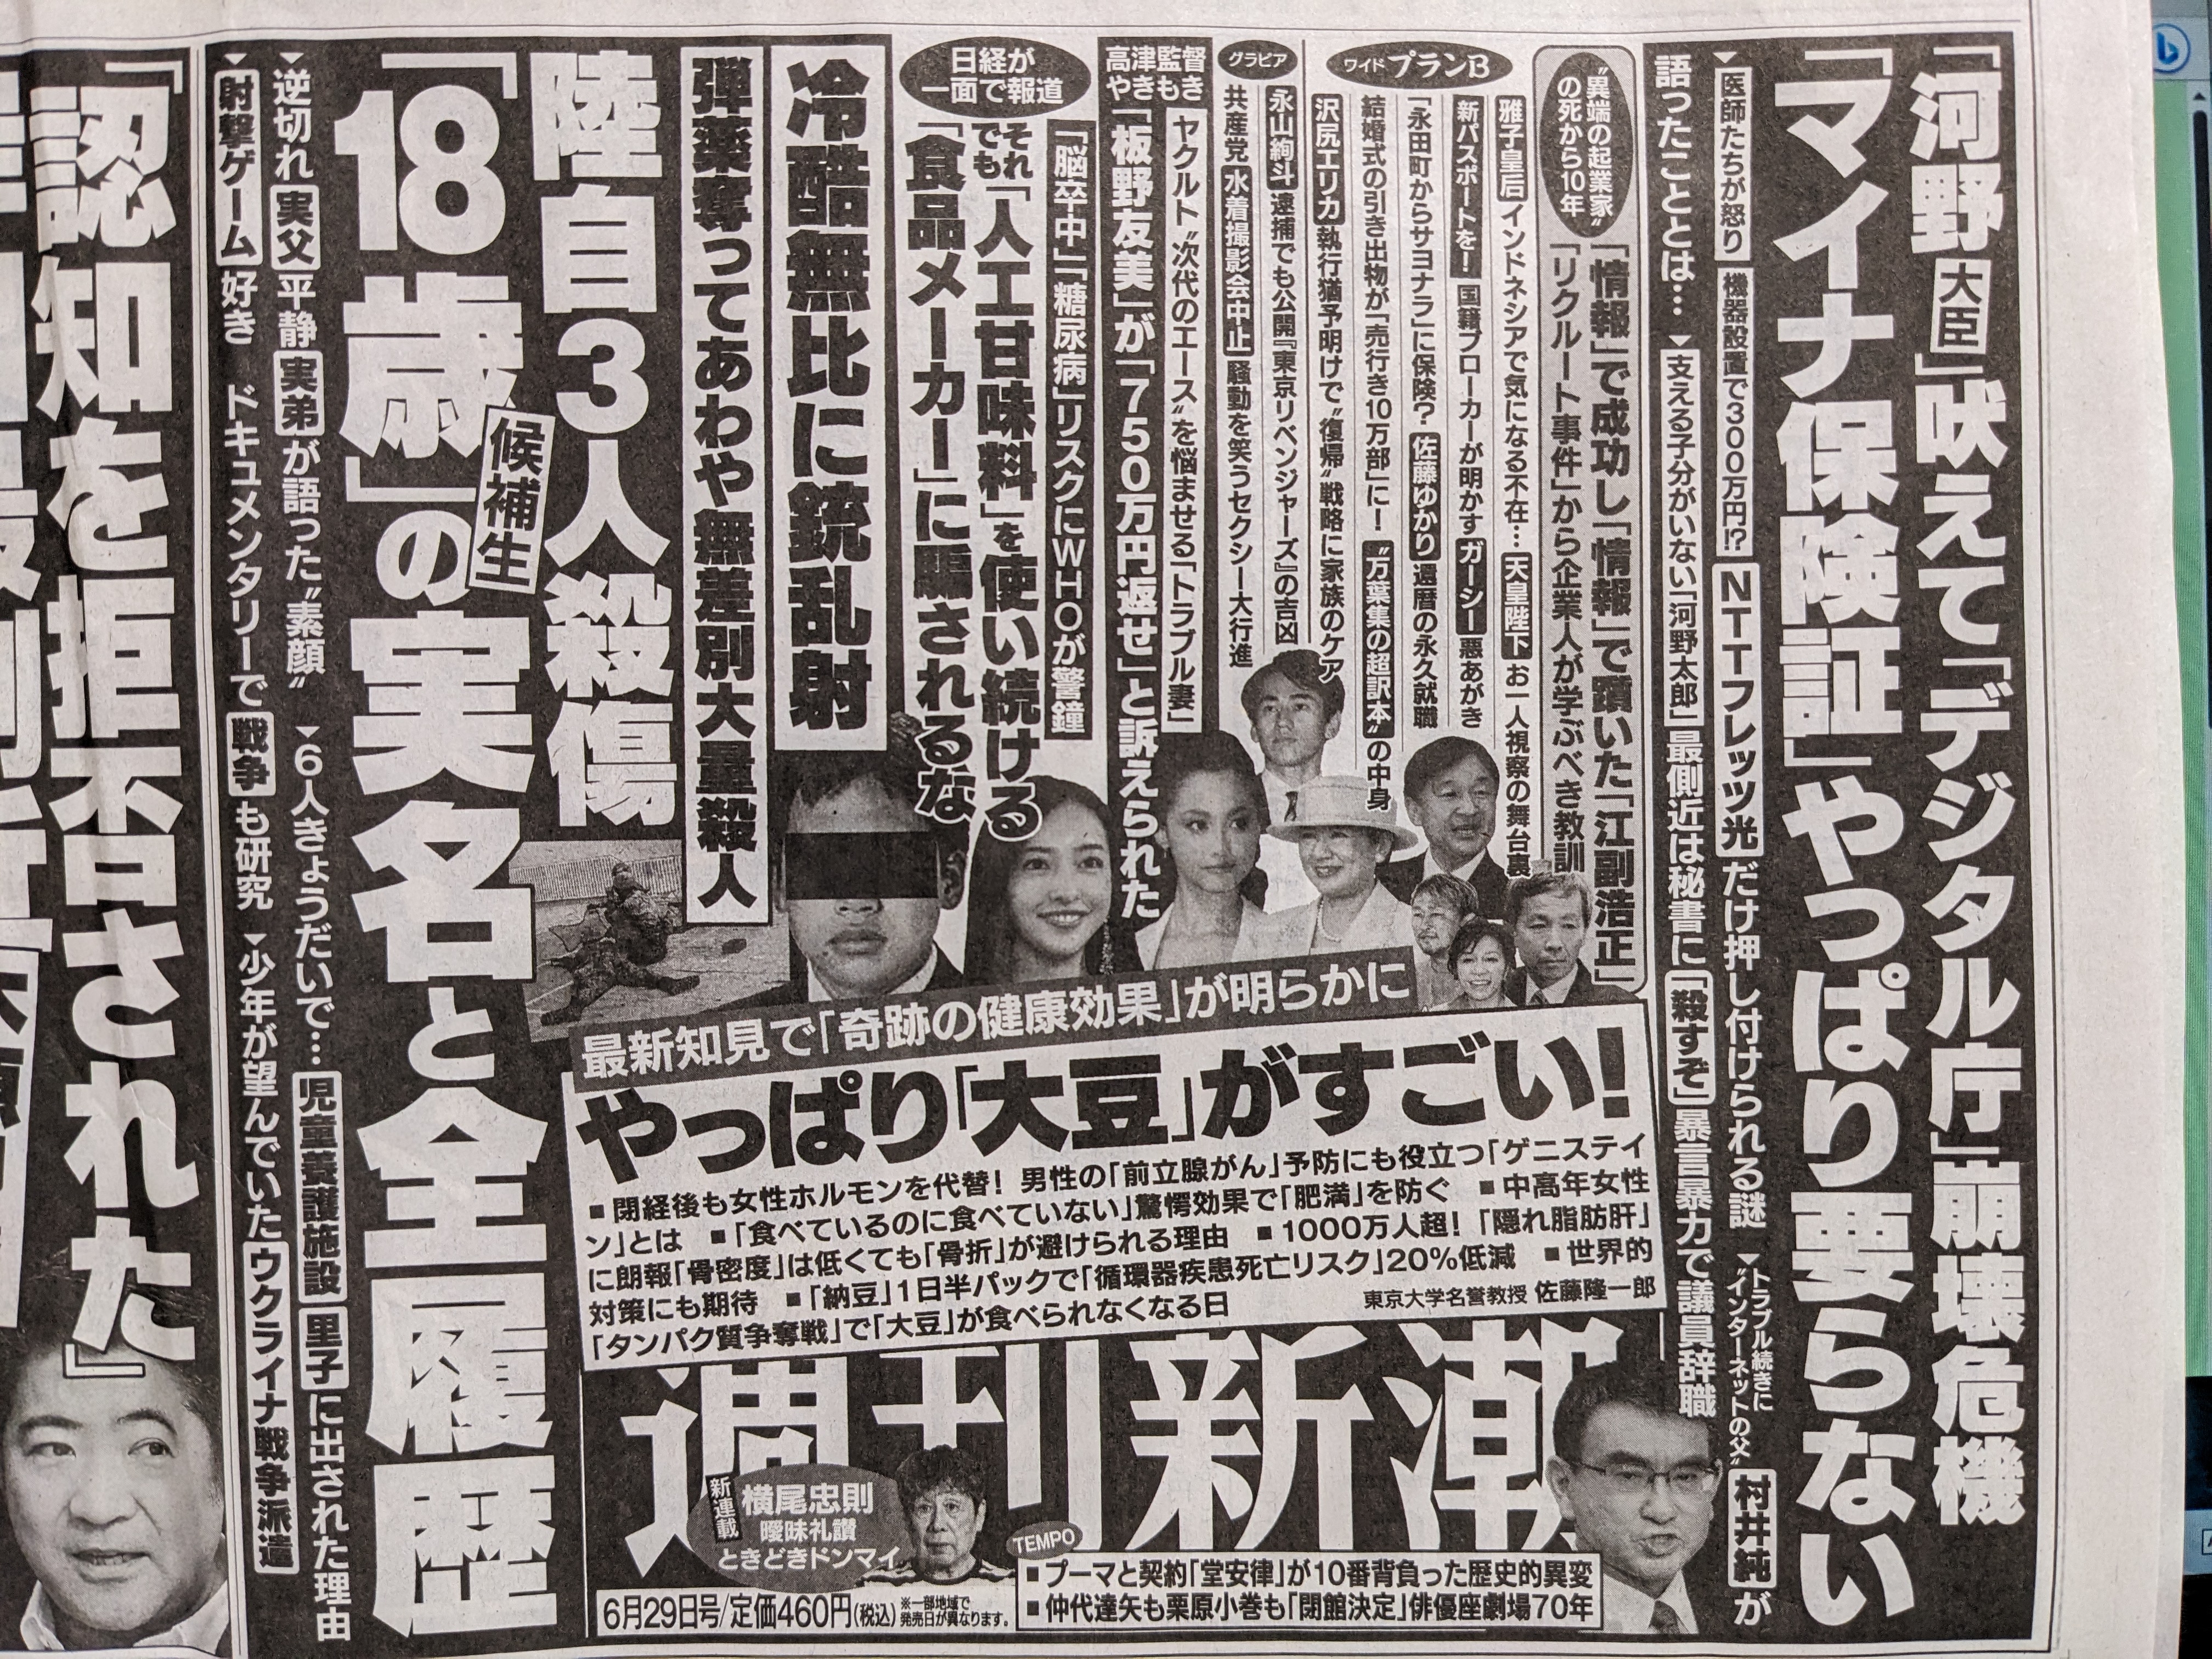 「河野大臣」吠えて「デジタル庁」崩壊危機
「マイナ保険証」やっぱり要らない
▼医師たちが怒り 機器設置で300万円!? NTTフレッツ光だけ押し付けられる謎 ▼トラブル続きに“インターネットの父”村井純が
語ったこととは… ▼支える子分がいない「河野太郎」最側近は秘書に「殺すぞ」暴言暴力で議員辞職
“異端の起業家”の死から10年
「情報」で成功し「情報」で躓いた「江副浩正」
「リクルート事件」から企業人が学ぶべき教訓
ワイド プランB
雅子皇后 インドネシアで気になる不在… 天皇陛下 お一人視察の舞台裏
新パスポートを! 国籍ブローカーが明かす ガーシー 悪あがき
「永田町からサヨナラ」に保険? 佐藤ゆかり 還暦の永久就職
結婚式の引き出物が「売行き10万部」に! “万葉集の超訳本”の中身
沢尻エリカ 執行猶予明けで“復帰”戦略に家族のケア
永山絢斗 逮捕でも公開『東京リベンジャーズ』の吉凶
グラビア
共産党 水着撮影会中止 騒動を笑うセクシー大行進
高津監督やきもき
ヤクルト“次代のエース”を悩ませる「トラブル妻」
「板野友美」が「750万円返せ」と訴えられた
「脳卒中」「糖尿病」リスクにWHOが警鐘
日経が一面で報道
それでも「人工甘味料」を使い続ける
「食品メーカー」に騙されるな
冷酷無比に銃乱射
弾薬奪ってあわや無差別大量殺人
陸自3人殺傷
「18歳」候補生の実名と全履歴
▼逆切れ実父 平静実弟が語った“素顔” ▼6人きょうだいで… 児童養護施設 里子に出された理由
▼射撃ゲーム好き ドキュメンタリーで戦争も研究 ▼少年が望んでいたウクライナ戦争派遣
認知を拒否された』
最新知見で「奇跡の健康効果」が明らかに
やっぱり「大豆」がすごい!
■閉経後も女性ホルモンを代替! 男性の「前立腺がん」予防にも役立つ「ゲニステイ
ン」とは ■「食べているのに食べていない」驚愕効果で「肥満」を防ぐ ■中高年女性
に朗報「骨密度」は低くても「骨折」が避けられる理由 ■1000万人超! 「隠れ脂肪肝」
対策にも期待 ■「納豆」1日半パックで「循環器疾患死亡リスク」20%低減 ■世界的
「タンパク質争奪戦」で「大豆」が食べられなくなる日
東京大学名誉教授 佐藤隆一郎
週刊新潮
新連載 横尾忠則
曖昧礼讃
ときどきドンマイ
TEMPO
■プーマと契約「堂安律」が10番背負った歴史的異変
■仲代達矢も栗原小巻も「閉館決定」俳優座劇場70年
6月29日号/定価460円(税込) ※一部地域で発売日が異なります。